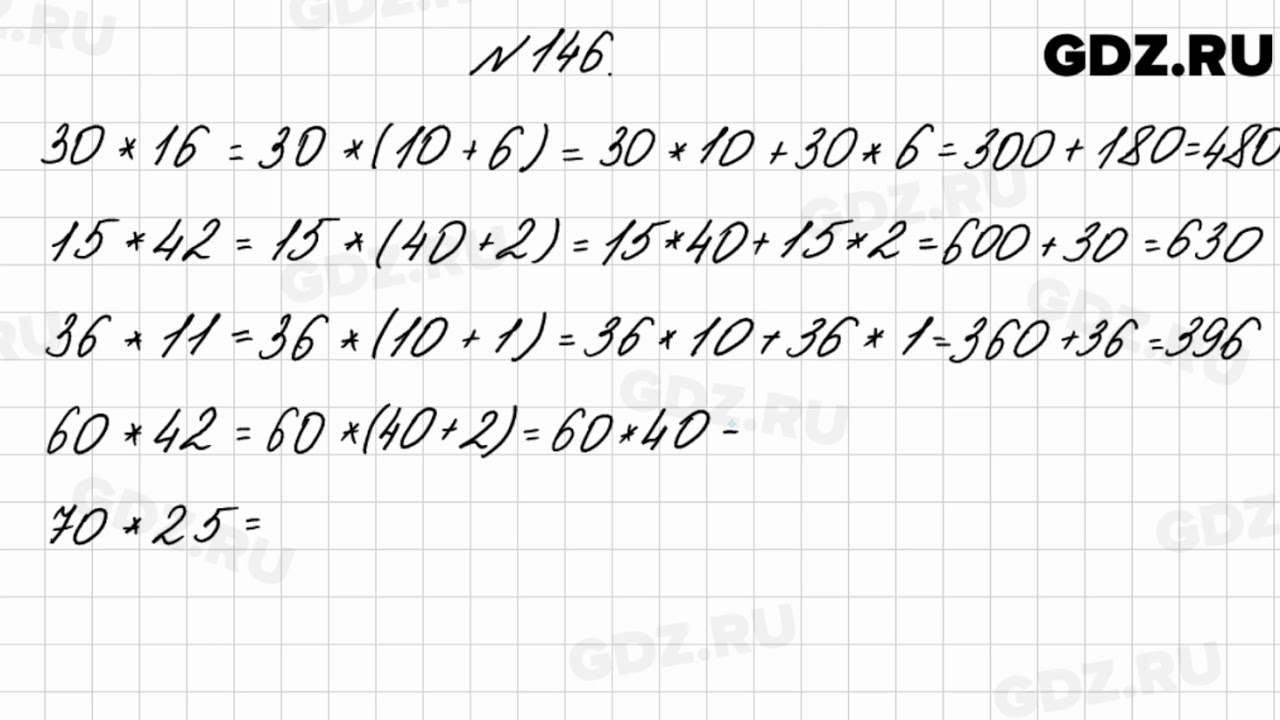 №146.
GDZ.RU
30 * 16 = 30 * (10 + 6) = 30 * 10 + 30 * 6 = 300 + 180 = 480
15 * 42 = 15 * (40 + 2) = 15 * 40 + 15 * 2 = 600 + 30 = 630
36 * 11 = 36 * (10 + 1) = 36 * 10 + 36 * 1 = 360 + 36 = 396
60 * 42 = 60 * (40 + 2) = 60 * 40 -
70 * 25 =